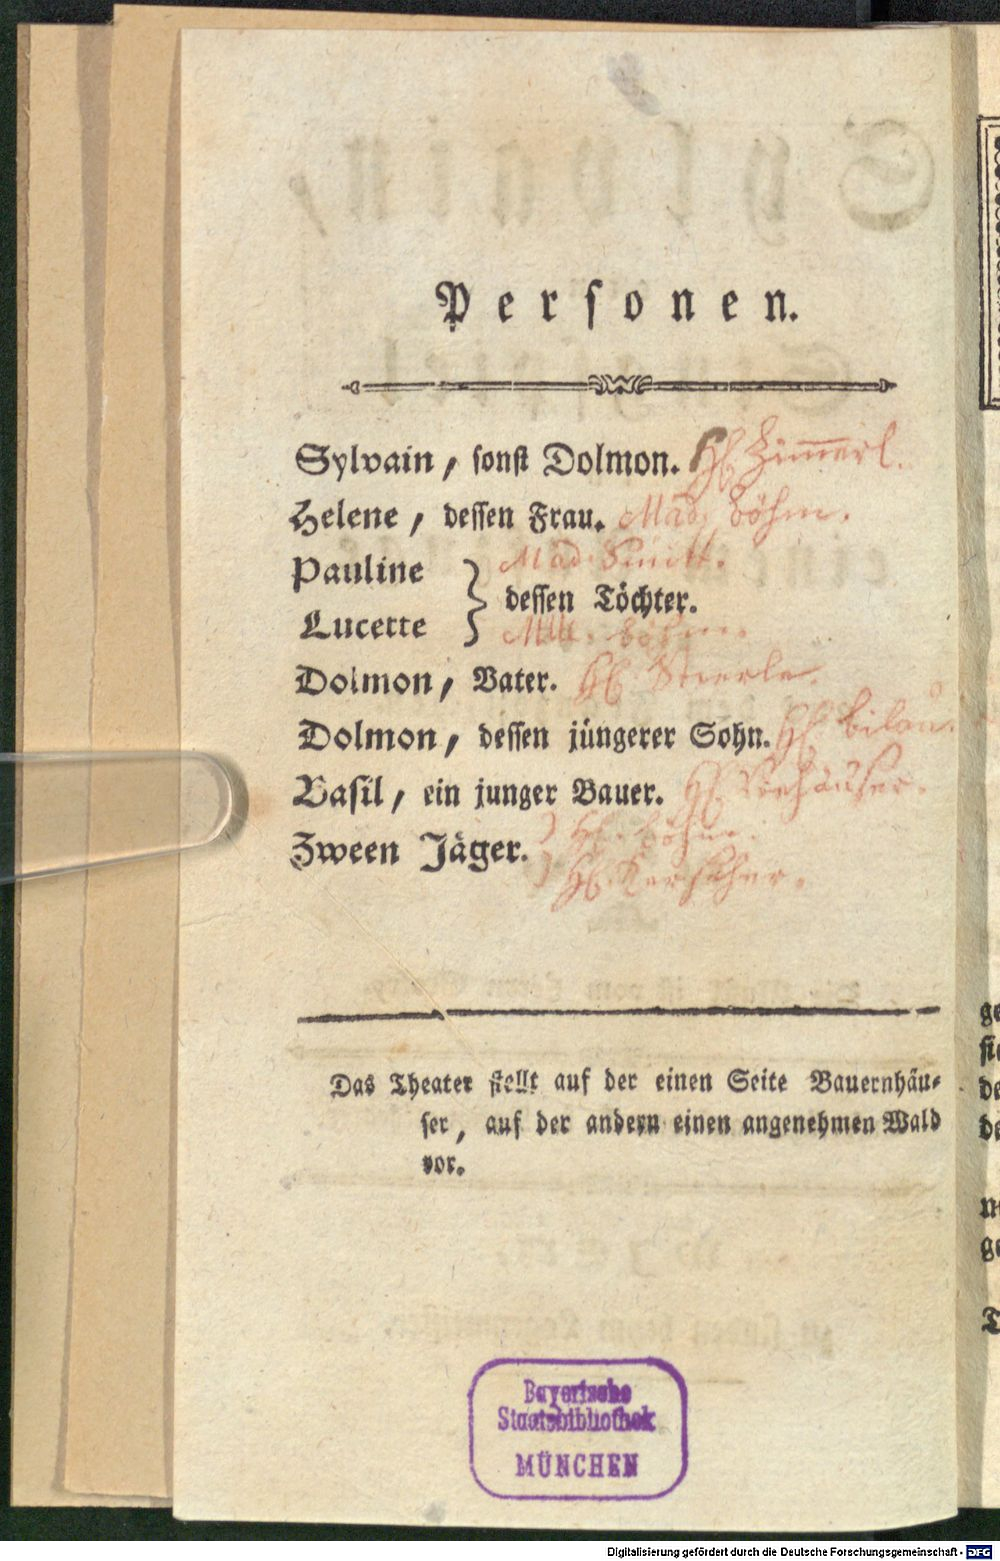 Personen.
Sylvain, sonst Dolmon. H. Zimmerl.
Helene, dessen Frau. Mad. Böhm.
Pauline Mad.
dessen Töchter.
Lucette Mlle. Böhm.
Dolmon, Vater. H. Stierle.
Dolmon, dessen jüngerer Sohn. H. Bilau.
Basil, ein junger Bauer. H.
Zween Jäger. H. Böhm.
H.
Das Theater stellt auf der einen Seite Bauernhäu-
ser, auf der andern einen angenehmen Wald
vor.
Bayerische
Staatsbibliothek
MÜNCHEN
Digitalisierung gefördert durch die Deutsche Forschungsgemeinschaft - DFG